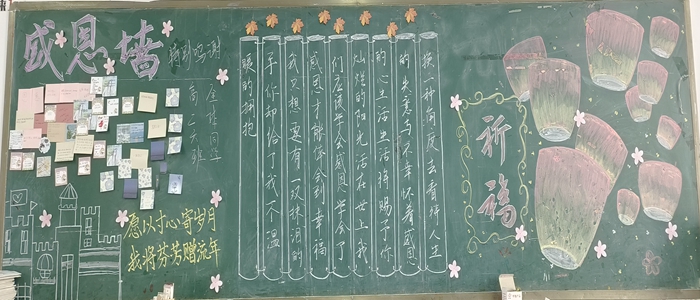 感恩墙
特别鸣谢
全体同学
高二六班
愿以寸心寄岁月
我将芬芳赠流年
换一种角度去看待人生
的失意与不幸怀着感恩
的心生活生活将赐予你
灿烂的阳光活在世上我
们应该学会感恩学会了
感恩才能体会到幸福
我只想要有一双抹泪的
手你却给了我一个温
暖的拥抱
祈福